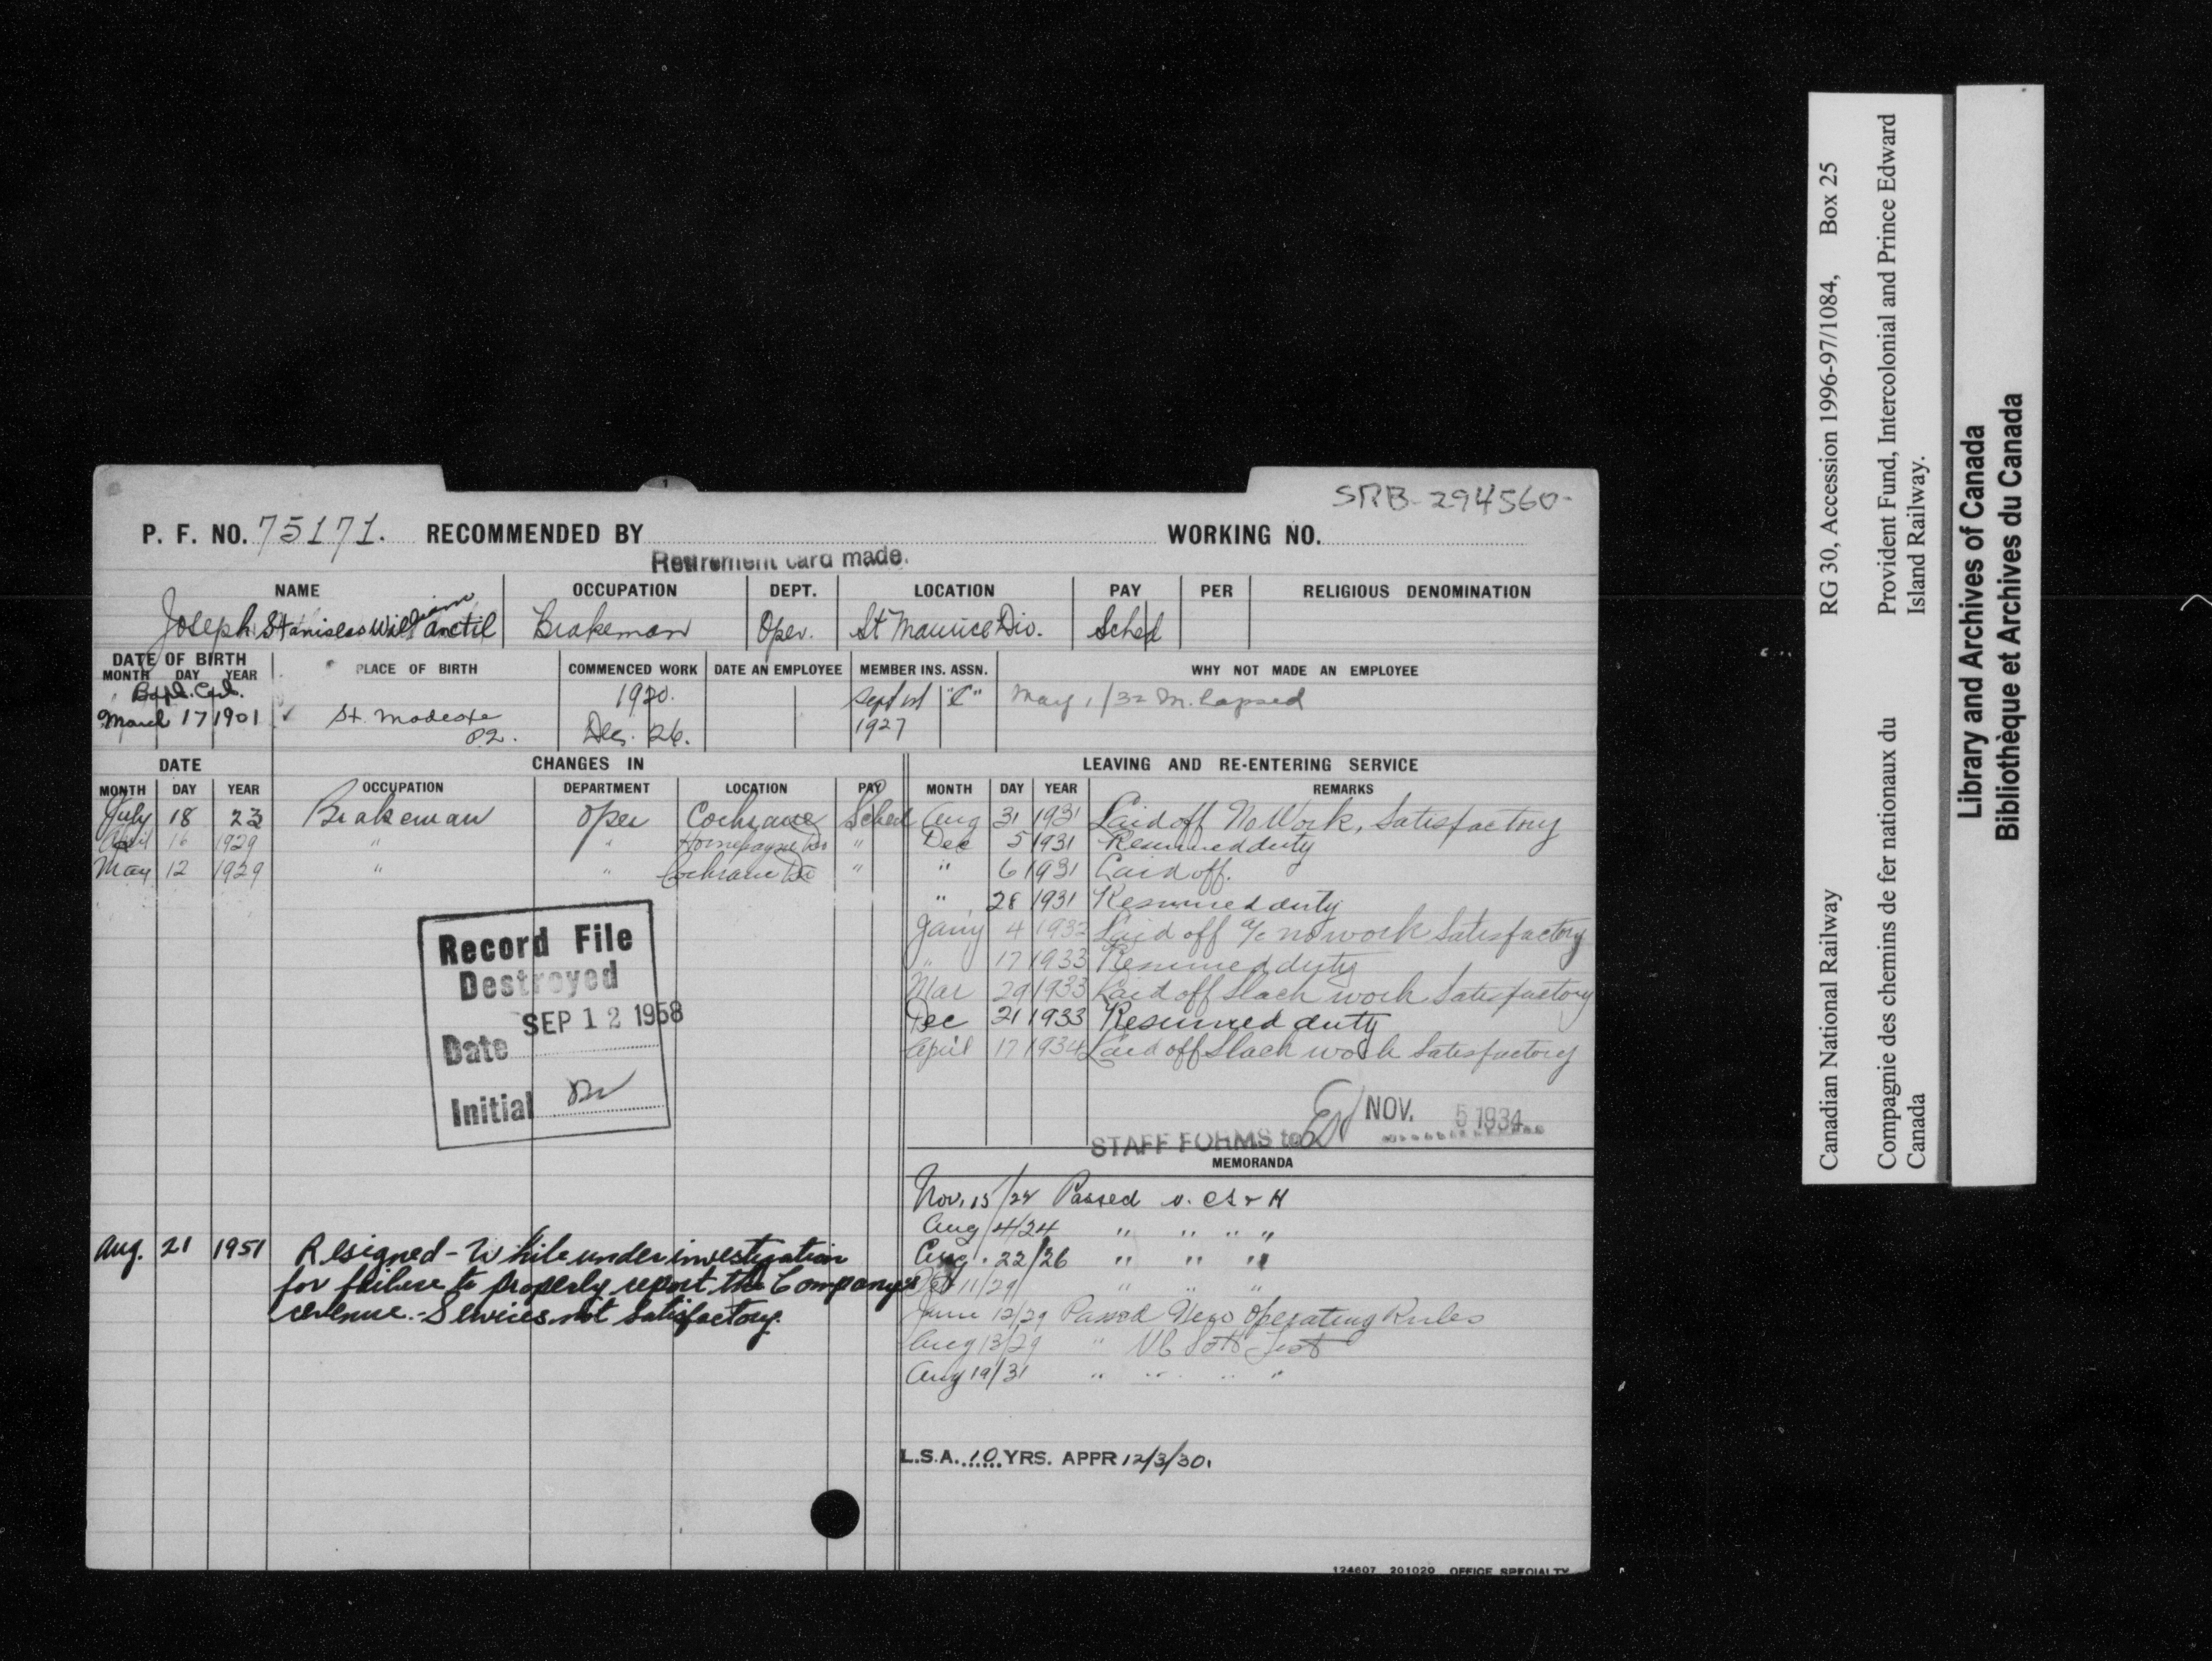 SRB-294560-
P. F. NO. 75171. RECOMMENDED BY WORKING NO.
Retirement card made.
NAME OCCUPATION DEPT. LOCATION PAY PER RELIGIOUS DENOMINATION
Joseph Stanislas William Anctil Brakeman Oper. St Maurice Div. Sched
DATE OF BIRTH PLACE OF BIRTH COMMENCED WORK DATE AN EMPLOYEE MEMBER INS. ASSN. WHY NOT MADE AN EMPLOYEE
MONTH DAY YEAR
Bapt. Cert. 1920. Sept 1st "C" May 1/32 M. Lapsed
March 17 1901 St. Modeste Dec. 26. 1927
P2.
DATE CHANGES IN LEAVING AND RE-ENTERING SERVICE
MONTH DAY YEAR OCCUPATION DEPARTMENT LOCATION PAY MONTH DAY YEAR REMARKS
July 18 23 Brakeman Oper Cochrane Sched Aug 31 1931 Laid off No Work, Satisfactory
April 16 1929 " " Hornepayne Div " Dec 5 1931 Resumed duty
May 12 1929 " " Cochrane Div " " 6 1931 Laid off.
" 28 1931 Resumed duty
Jany 4 1932 Laid off a/c no work Satisfactory
" 17 1933 Resumed duty
Mar 29 1933 Laid off Slack work Satisfactory
Dec 21 1933 Resumed duty
April 17 1934 Laid off Slack work Satisfactory
Record File
Destroyed
SEP 12 1958
Date
Initial
STAFF FORMS to NOV. 5 1934
MEMORANDA
Nov. 15/24 Passed v. cs & H
Aug 4/24 " " " "
Aug. 22/26 " " "
11/29 " " "
June 12/29 Passed New Operating Rules
Aug 13/29 " Test
Aug 19/31 " " " "
Aug. 21 1951 Resigned - While under investigation
for failure to properly report the Company's
revenue. - Services not satisfactory.
L.S.A. 10 YRS. APPR 12/3/30.
124607 201020 OFFICE SPECIALTY
Canadian National Railway RG 30, Accession 1996-97/1084, Box 25
Compagnie des chemins de fer nationaux du Provident Fund, Intercolonial and Prince Edward
Canada Island Railway.
Library and Archives of Canada
Bibliothèque et Archives du Canada